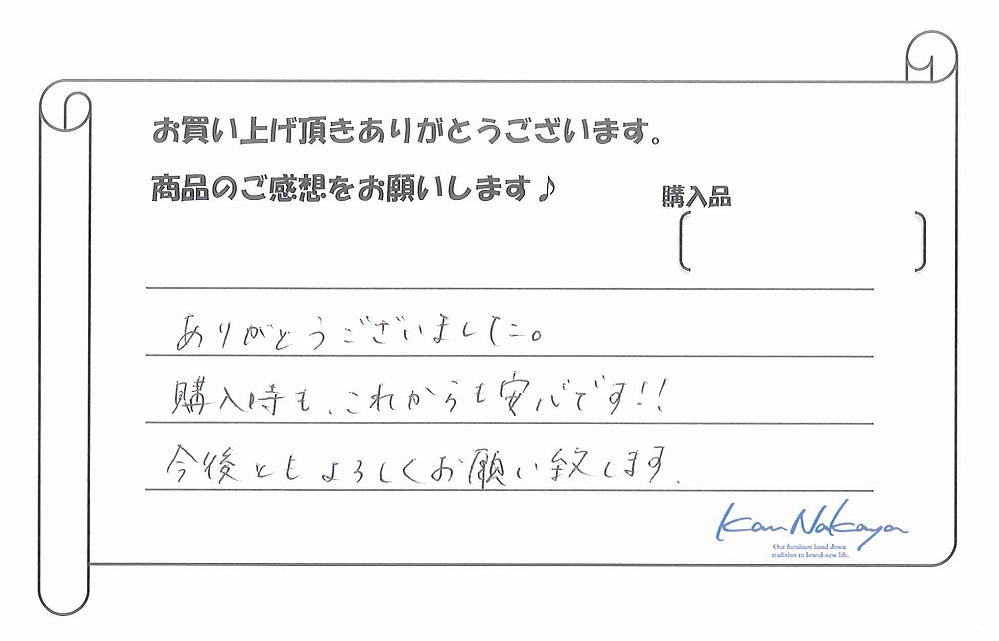 お買い上げ頂きありがとうございます。
商品のご感想をお願いします♪
購入品
ありがとうございました。
購入時も、これからも安心です!!
今後ともよろしくお願い致します.
Kan Nakaya
Our furniture hand down
tradition to brand-new life.